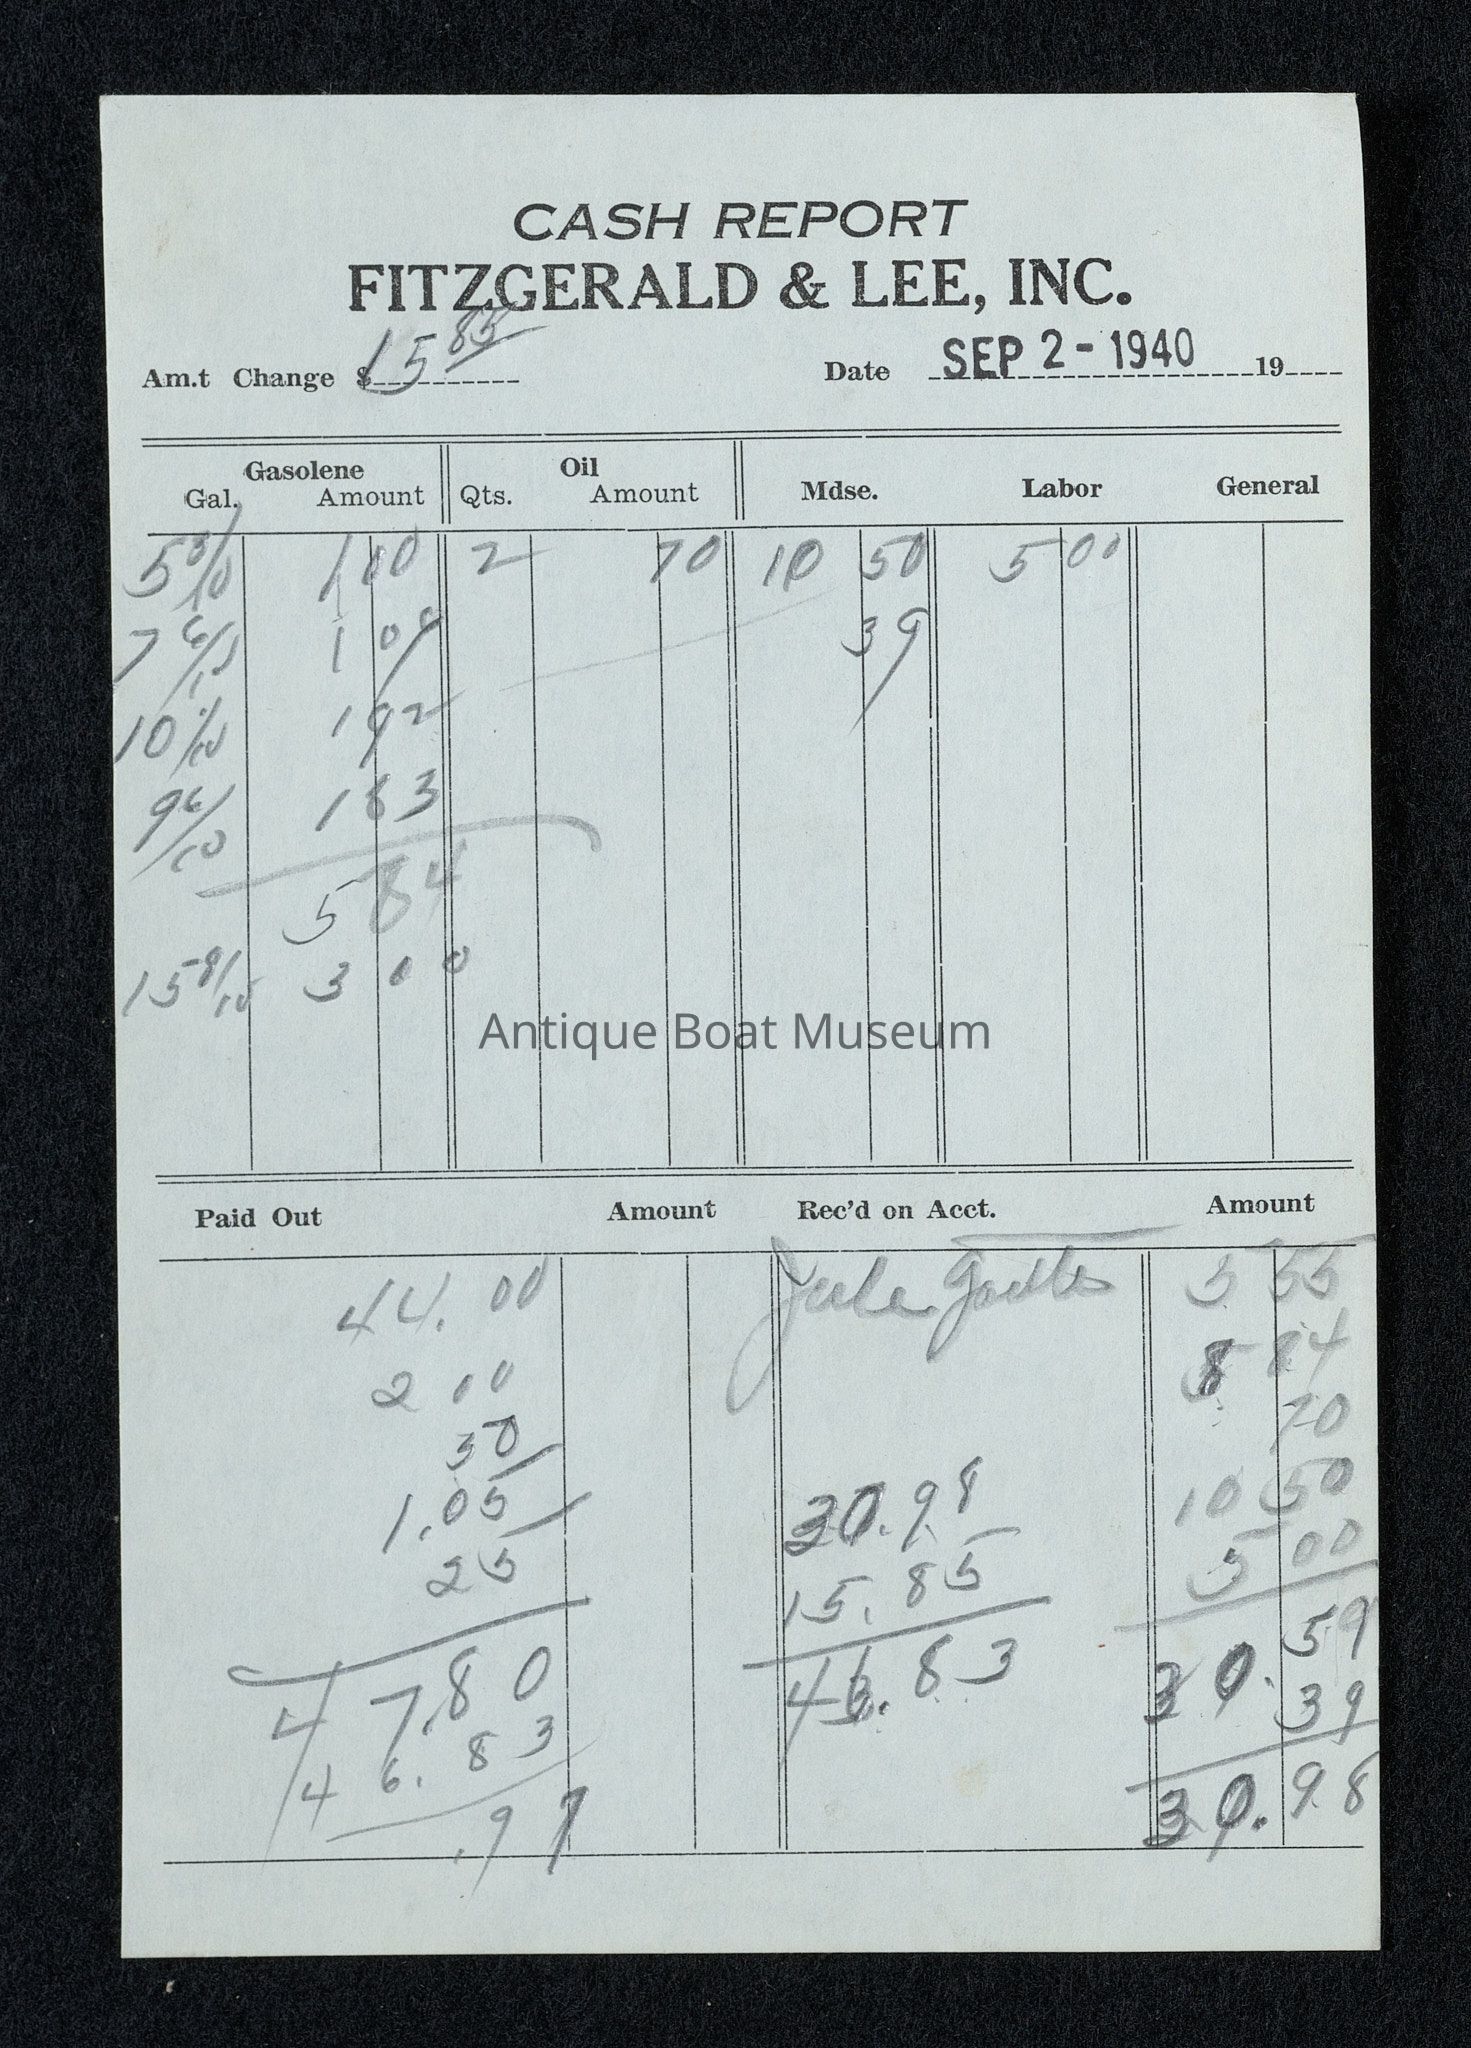 CASH REPORT
FITZGERALD & LEE, INC.
Am.t Change $ 15 85
Date SEP 2 - 1940 19
Gasolene Oil
Gal. Amount Qts. Amount Mdse. Labor General
5 3/10 1 00 2 70 10 50 5 00
7 6/10 1 09 39
10 1/10 1 92
9 6/10 1 83
5 84
15 8/10 3 00
Antique Boat Museum
Paid Out Amount Rec'd on Acct. Amount
44.00 5 55
2 00 8 84
50 70
1.05 30.98 10 50
25 15.85 5 00
47.80 46.83 30.59
46.83 39
.97 30.98